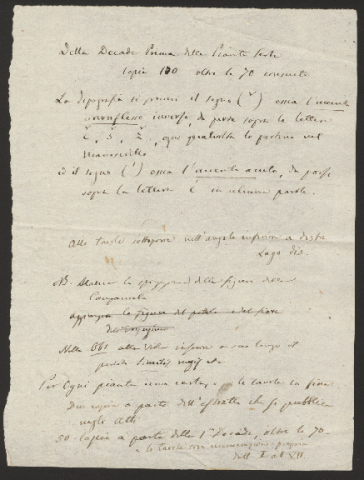 Della Decade Prima delle Piante
copie 100 oltre le 70 consuete
La tipografia si procuri il segno (ˇ) ossia l'accento
circonflesso inverso, da porre sopra le lettere
č, š, ž, ogni qualvolta lo portino nel
Manoscritto
ed il segno (´) ossia l'accento acuto, da porsi
sopra la lettera ć in alcune parole.
Alle tavole sottoporre nell'angolo inferiore a destra
Lago dis.
NB. Manca la spiegazione delle figure della
Campanula
aggiungere la figura del petalo e del fiore
Nella
Per ogni pianta una cartag. e le tavole in fine
Due copie a parte dell'estratto che si pubblica
negli Atti
50 copie a parte della 1ª Decade, oltre le 70
e le tavole con numerazione propria
dall' I al XII.